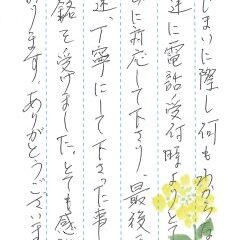 じまいに際し何もわからな
達に電話受付時よりとて
に対応して下さり、最後ま
速、丁寧にして下さった事
銘を受けました。とても感謝
ります。ありがとうございま